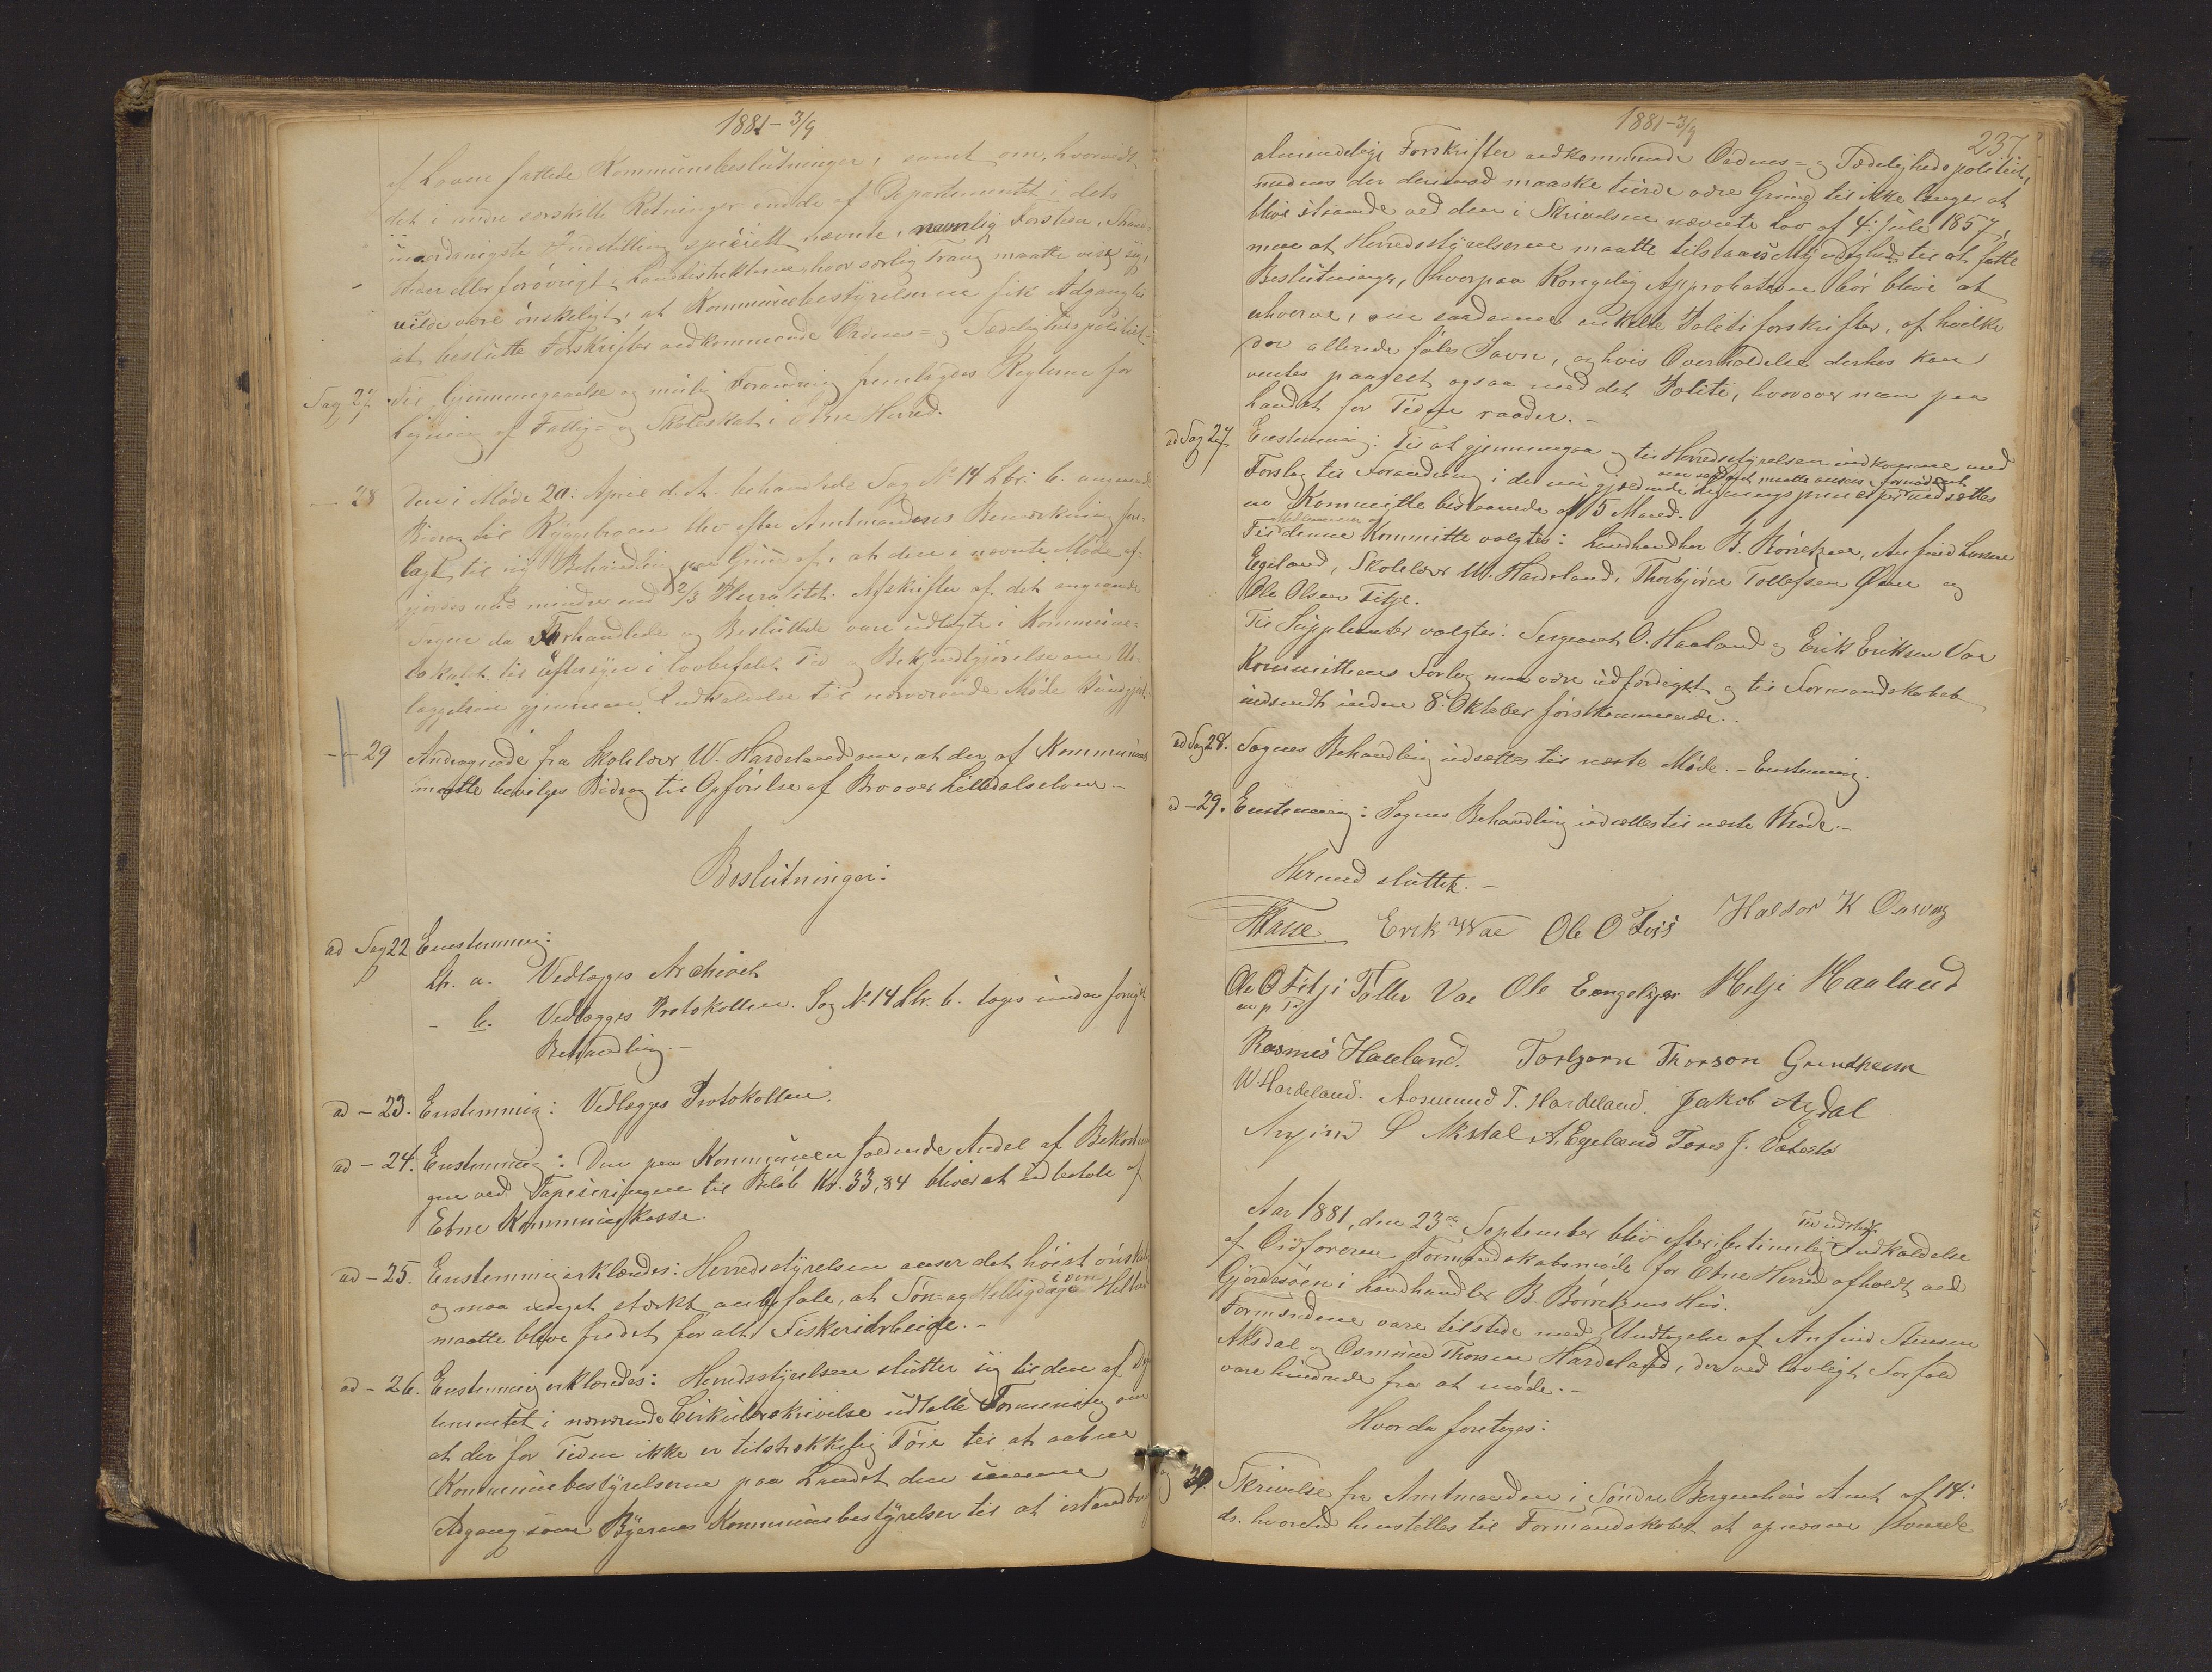 1881 - 3/9
af Loven fattede Kommunebeslutninger, samt om, hvorvidt
det i andre særskilte Retninger end de af Departementet i dets
underdanigste Indstilling specielt nævnte, navnlig Forsteder, Strand-
steder eller forøvrigt i Landdistrikterne, hvor særlig Trang maatte vise sig,
vilde være ønskeligt, at Kommunebestyrelserne fik Adgang til
at beslutte Forskrifter vedkommende Ordens- og Sædelighedspolitiet.
Sag 27. Til Gjennemgaaelse og mulig Forandring fremlagdes Reglerne for
Ligning af Fattig- og Skoleskat i Etne Herred.
- 28 Den i Møde 20. April d. A. behandlede Sag No 14 Ltr. b. angaaende
Bidrag til Ryggebroen blev efter Amtmandens Bemærkning fore-
lagt til ny Behandling paa Grund af, at den i nævnte Møde af-
gjordes med mindre end 2/3 Pluralitet. Afskrifter af det angaaende
Sagen da Forhandlede og Besluttede vare udlagte i Kommune-
lokalet til Eftersyn i lovbefalet Tid og Bekjendtgjørelse om Ud-
læggelsen gjennem Indkaldelse til nærværende Møde kundgjort.
- 29 Andragende fra Skolelærer W. Hardeland om, at der af Kommunen
maatte bevilges Bidrag til Opførelse af Bro over Litledalselven. -
Beslutninger:
ad Sag 22 Enstemmig:
Ltr. a. Vedlægges Archivet
- b. Vedlægges Protokollen. Sag No 14 Ltr. b. tages under fornyet
Behandling. -
ad - 23. Enstemmig: Vedlægges Protokollen.
ad - 24. Enstemmig: Den paa Kommunen faldende Andel af Bekostnin-
gen ved Tapiseringen til Beløb Kr. 33,84 bliver at udbetale af
Etne Kommunekasse.
ad - 25. Enstemmig erklæredes: Herredsstyrelsen anser det høist ønskeligt
og maa meget stærkt anbefale, at Søn- og Helligdagen
maatte blive fredet for alt Fiskeriarbeide. -
ad - 26. Enstemmig erklæredes: Herredsstyrelsen slutter sig til den af Depar-
tementet i nærværende Cirkulærskrivelse udtalte Formening om
at der for Tiden ikke er tilstrækkelig Føie til at aabne
Kommunebestyrelserne paa Landet den samme
Adgang som Byernes Kommunebestyrelser til at istandbringe
1881 - 3/9
237
almindelige Forskrifter vedkommende Ordens- og Sædelighedspolitiet,
medens der derimod maaske turde være Grund til ikke længer at
blive staaende ved den i Skrivelsen nævnte Lov af 4. Juli 1857,
men at Herredsstyrelserne maatte tilstaaes Myndighed til at fatte
Beslutninger, hvorpaa Kongelig Approbation bør blive at
erhverve, om saadanne enkelte Politiforskrifter, af hvilke
der allerede føles Savn, og hvis Overholdelse derhos kan
ventes paaseet ogsaa med det Politi, hvorover man paa
Landet for Tiden raader. -
ad Sag 27. Enstemmig: Til at gjennemgaa og til Herredsstyrelsen indkomme med
om saadant maatte ansees fornødent
Forslag til Forandring i de nu gjældende Ligningsprinciper nedsættes
en Kommitte bestaaende af 5 Mænd.
Medlemmer af
Til denne Kommitte valgtes: Landhandler B. Børretzen, Anfind Larsen
Egeland, Skolelærer W. Hardeland, Thorbjørn Tollefsen Øien og
Ole Olsen Fitje.
Til Supplenter valgtes: Sergeant O. Haaland og Erik Eriksen Vae
Kommitteens Forslag maa være udfærdiget og til Formandskabet
indsendt inden 8. Oktober førstkommende..
ad Sag 28. Sagens Behandling udsættes til næste Møde. - Enstemmig.
ad - 29. Enstemmig: Sagens Behandling udsættes til næste Møde. -
Hermed sluttet. -
Erik Wae Ole O Haldor K
Ole O Fitji Tollev Vae Ole Engelsgar Helje Haaland
m p P
Rasmus Haaland. Torbjørn Thorson Grindheim
W. Hardeland. Aosmund T. Hardeland. Jakob Aydal
Anfind S Aksdal A. Egeland Tore J.
Aar 1881, den 23de September blev efter betimelig Indkaldelse
af Ordføreren Formandskabsmøde for Etne Herred afholdt ved
Gjerdesøen i Landhandler B. Børretzens Hus.
Formændene vare tilstede med Undtagelse af Anfind Stensen
Aksdal og Osmund Thorsen Hardeland, der ved lovligt Forfald
vare hindrede fra at møde. -
Hvorda foretoges:
Sag 30. Skrivelse fra Amtmanden i Søndre Bergenhus Amt af 14.
ds. hvorved henstilles til Formandskabet at opnævne